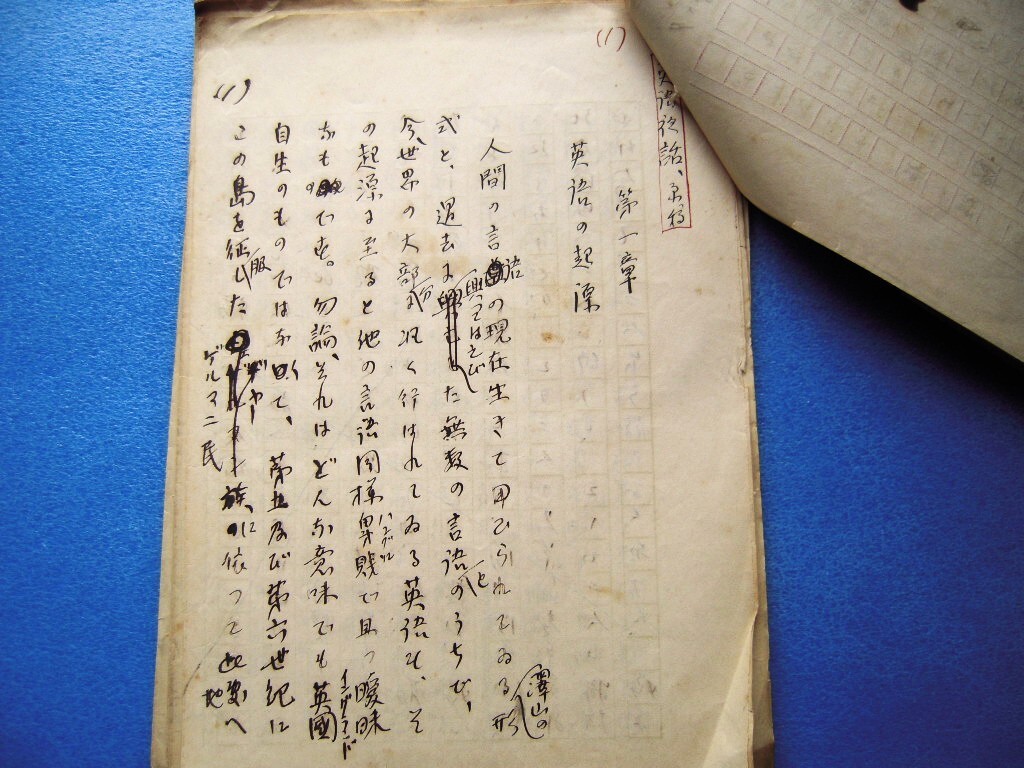 (1)
第一章
英語の起源
人間の言語の現在生きて用ひられてゐる澤山の形
式と、過去に興つてはろびた無数の言語とのうちで、
今、世界の大部分に汎く行はれてゐる英語も、そ
の起源に至ると他の言語同様卑賤で且つ曖昧
なものです。勿論、それはどんな意味でも英國
イングランド
自生のものではなくて、第五及び第六世紀に
この島を征服した
ゲルマニ民族に依つて此地へ
(1)